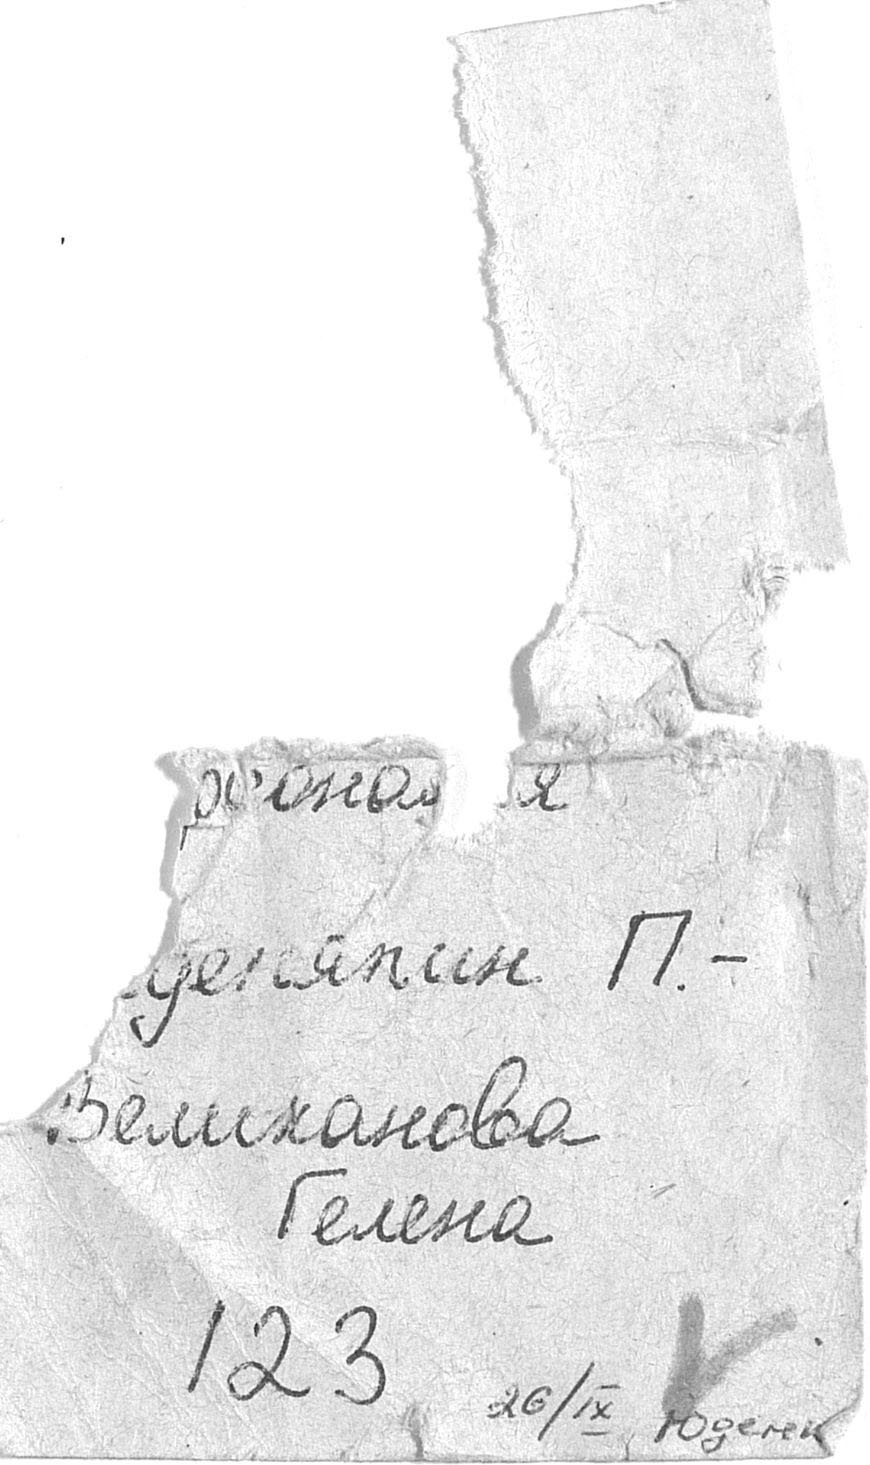 деняпин П.-
Велиханова
Гелена
123
26/IX Юденк